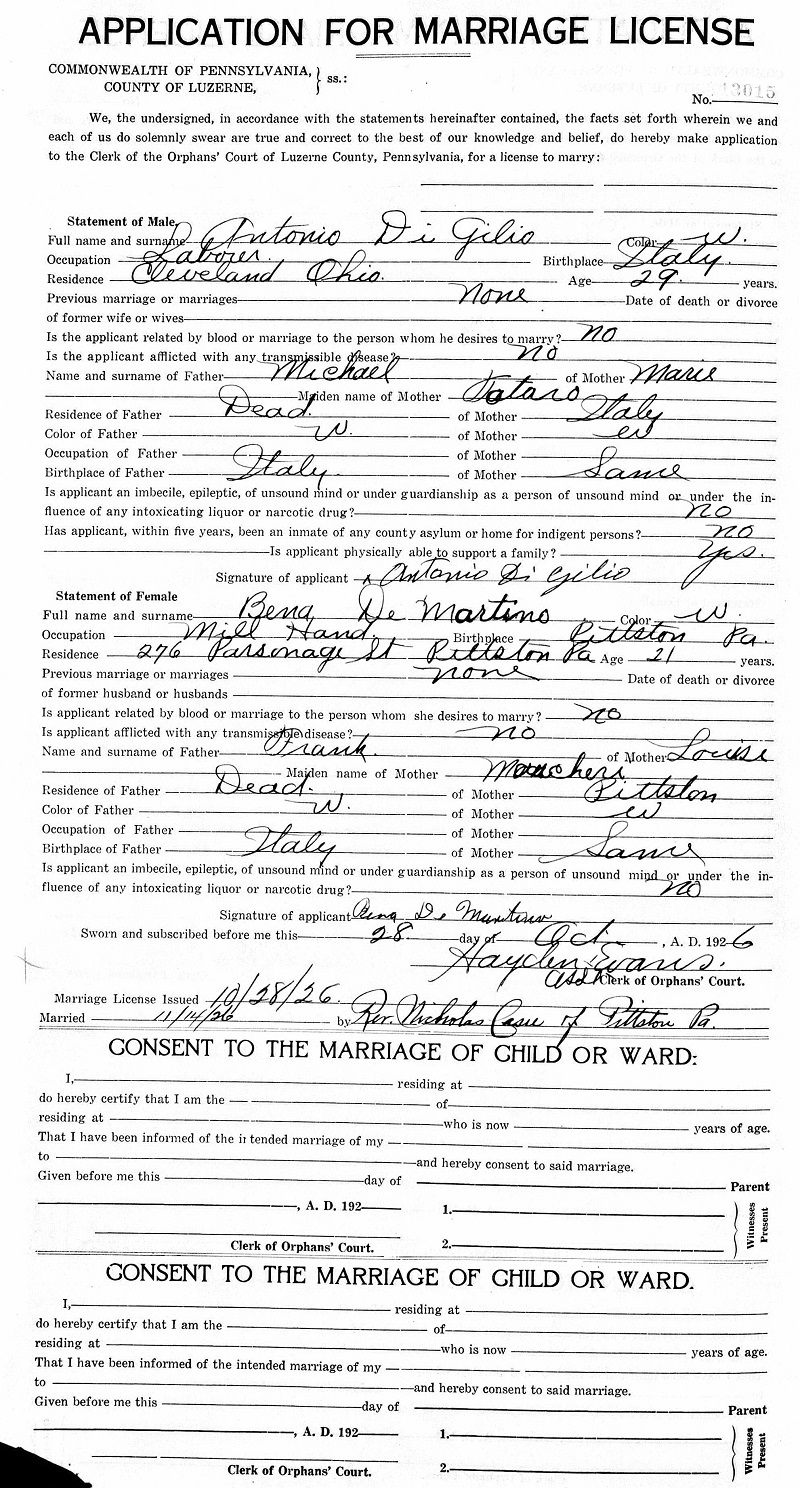 APPLICATION FOR MARRIAGE LICENSE
COMMONWEALTH OF PENNSYLVANIA,
COUNTY OF LUZERNE, } ss.:
No. 13015
We, the undersigned, in accordance with the statements hereinafter contained, the facts set forth wherein we and
each of us do solemnly swear are true and correct to the best of our knowledge and belief, do hereby make application
to the Clerk of the Orphans' Court of Luzerne County, Pennsylvania, for a license to marry:
Statement of Male
Full name and surname Antonio Di Gilio Color W.
Occupation Laborer. Birthplace Italy.
Residence Cleveland Ohio. Age 29. years.
Previous marriage or marriages None Date of death or divorce
of former wife or wives
Is the applicant related by blood or marriage to the person whom he desires to marry? no
Is the applicant afflicted with any transmissible disease? no
Name and surname of Father Michael of Mother Marie
Maiden name of Mother Tataro
Residence of Father Dead. of Mother Italy
Color of Father W. of Mother W
Occupation of Father of Mother
Birthplace of Father Italy. of Mother Same
Is applicant an imbecile, epileptic, of unsound mind or under guardianship as a person of unsound mind or under the in-
fluence of any intoxicating liquor or narcotic drug? no
Has applicant, within five years, been an inmate of any county asylum or home for indigent persons? no
Is applicant physically able to support a family? yes.
Signature of applicant x Antonio Di Gilio
Statement of Female
Full name and surname Bena De Martino Color W.
Occupation Mill Hand. Birthplace Pittston Pa.
Residence 276 Parsonage St Pittston Pa Age 21 years.
Previous marriage or marriages none Date of death or divorce
of former husband or husbands
Is applicant related by blood or marriage to the person whom she desires to marry? no
Is applicant afflicted with any transmissible disease? no
Name and surname of Father Frank. of Mother Louise
Maiden name of Mother
Residence of Father Dead. of Mother Pittston
Color of Father W. of Mother W
Occupation of Father of Mother
Birthplace of Father Italy of Mother Same
Is applicant an imbecile, epileptic, of unsound mind or under guardianship as a person of unsound mind or under the in-
fluence of any intoxicating liquor or narcotic drug? no
Signature of applicant Bena De Martino
Sworn and subscribed before me this 28 day of Oct. , A. D. 1926
Hayden Evans.
Asst Clerk of Orphans' Court.
Marriage License Issued 10/28/26.
Married 11/14/26 by Rev. Nicholas of Pittston Pa.
CONSENT TO THE MARRIAGE OF CHILD OR WARD:
I, residing at
do hereby certify that I am the of
residing at who is now years of age.
That I have been informed of the intended marriage of my
to and hereby consent to said marriage.
Given before me this day of Parent
, A. D. 192 1.
Clerk of Orphans' Court. 2.
Witnesses Present
CONSENT TO THE MARRIAGE OF CHILD OR WARD.
I, residing at
do hereby certify that I am the of
residing at who is now years of age.
That I have been informed of the intended marriage of my
to and hereby consent to said marriage.
Given before me this day of Parent
, A. D. 192 1.
Clerk of Orphans' Court. 2.
Witnesses Present